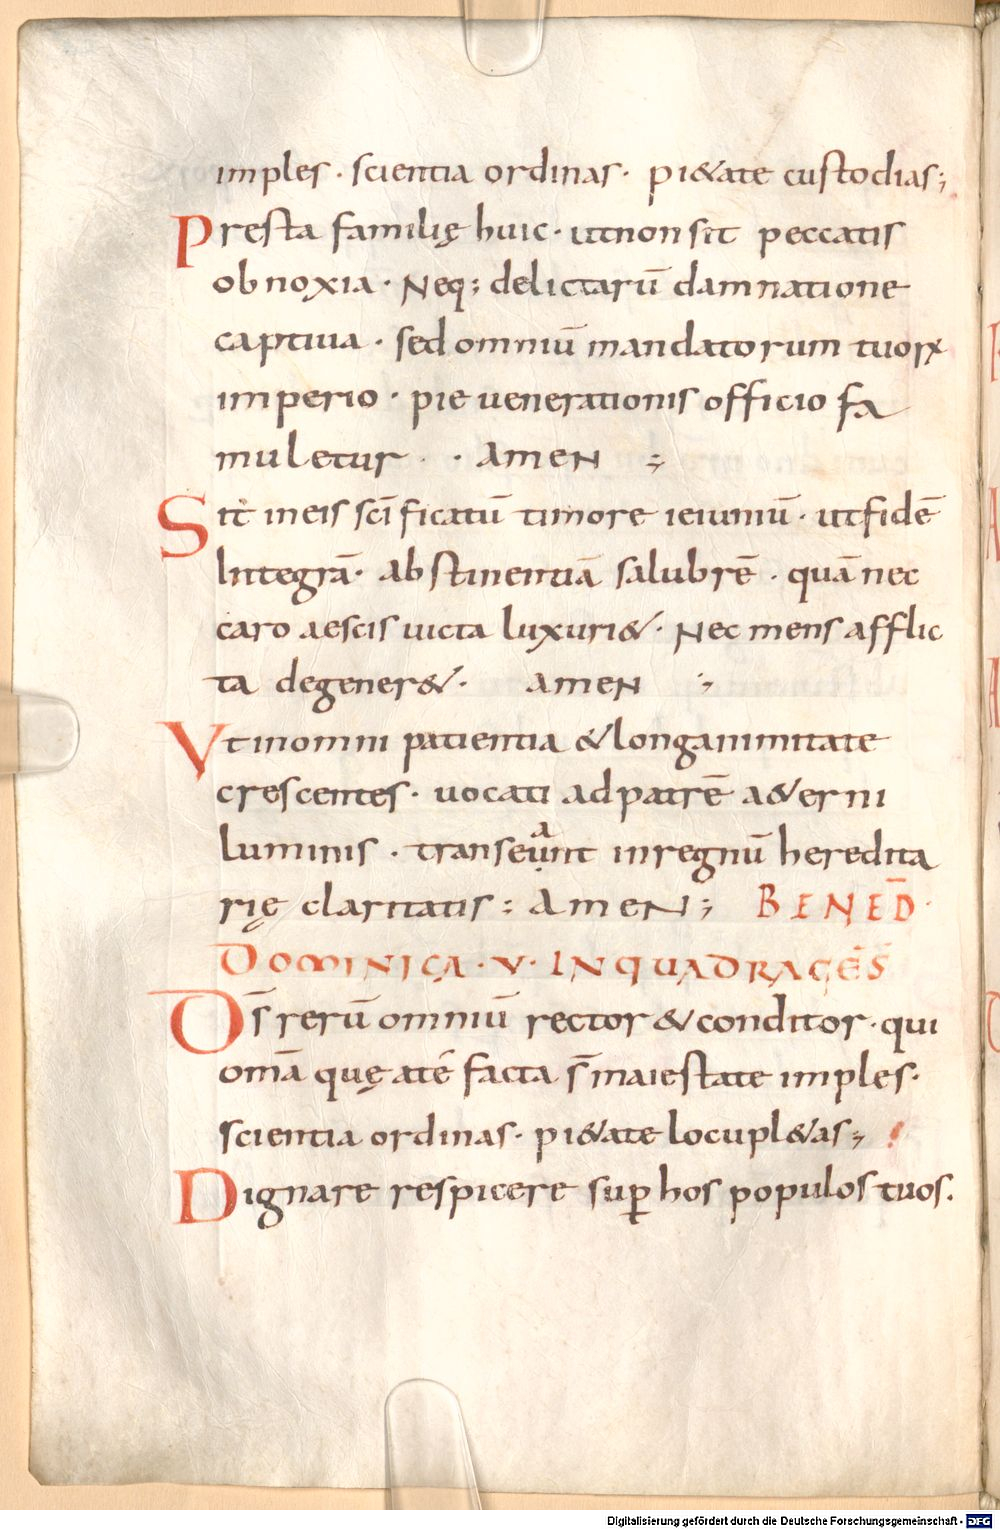 imples · scientia ordinas · pi&ate custodias;
Presta familię huic · utnonsit peccatis
obnoxia · Neq; delictarū damnatione
captiua · sed omniū mandatorum tuoꝝ
imperio · pie uenerationis officio fa
muletur · · amen ;
Sit ineis scīficatū timore ieiuniū · utfidē
Integrā · abstinentiā salubrē · quā nec
caro aescis uicta luxuri& · Nec mens afflic
ta degener& · amen ;
Vt inomni patientia & longanimitate
crescentes · uocati adpatrē a&erni
luminis · transeuant inregnū heredita
rię claritatis : Amen ; BENED̄ ·
DOMINICA · V · INQUADRAGĒS
Ds̄ rerū omniū rector & conditor · qui
omā quę atē facta s̄ maiestate imples ·
scientia ordinas · pi&ate locupl&as ;
Dignare respicere suꝑ hos populos tuos .
Digitalisierung gefördert durch die Deutsche Forschungsgemeinschaft - DFG